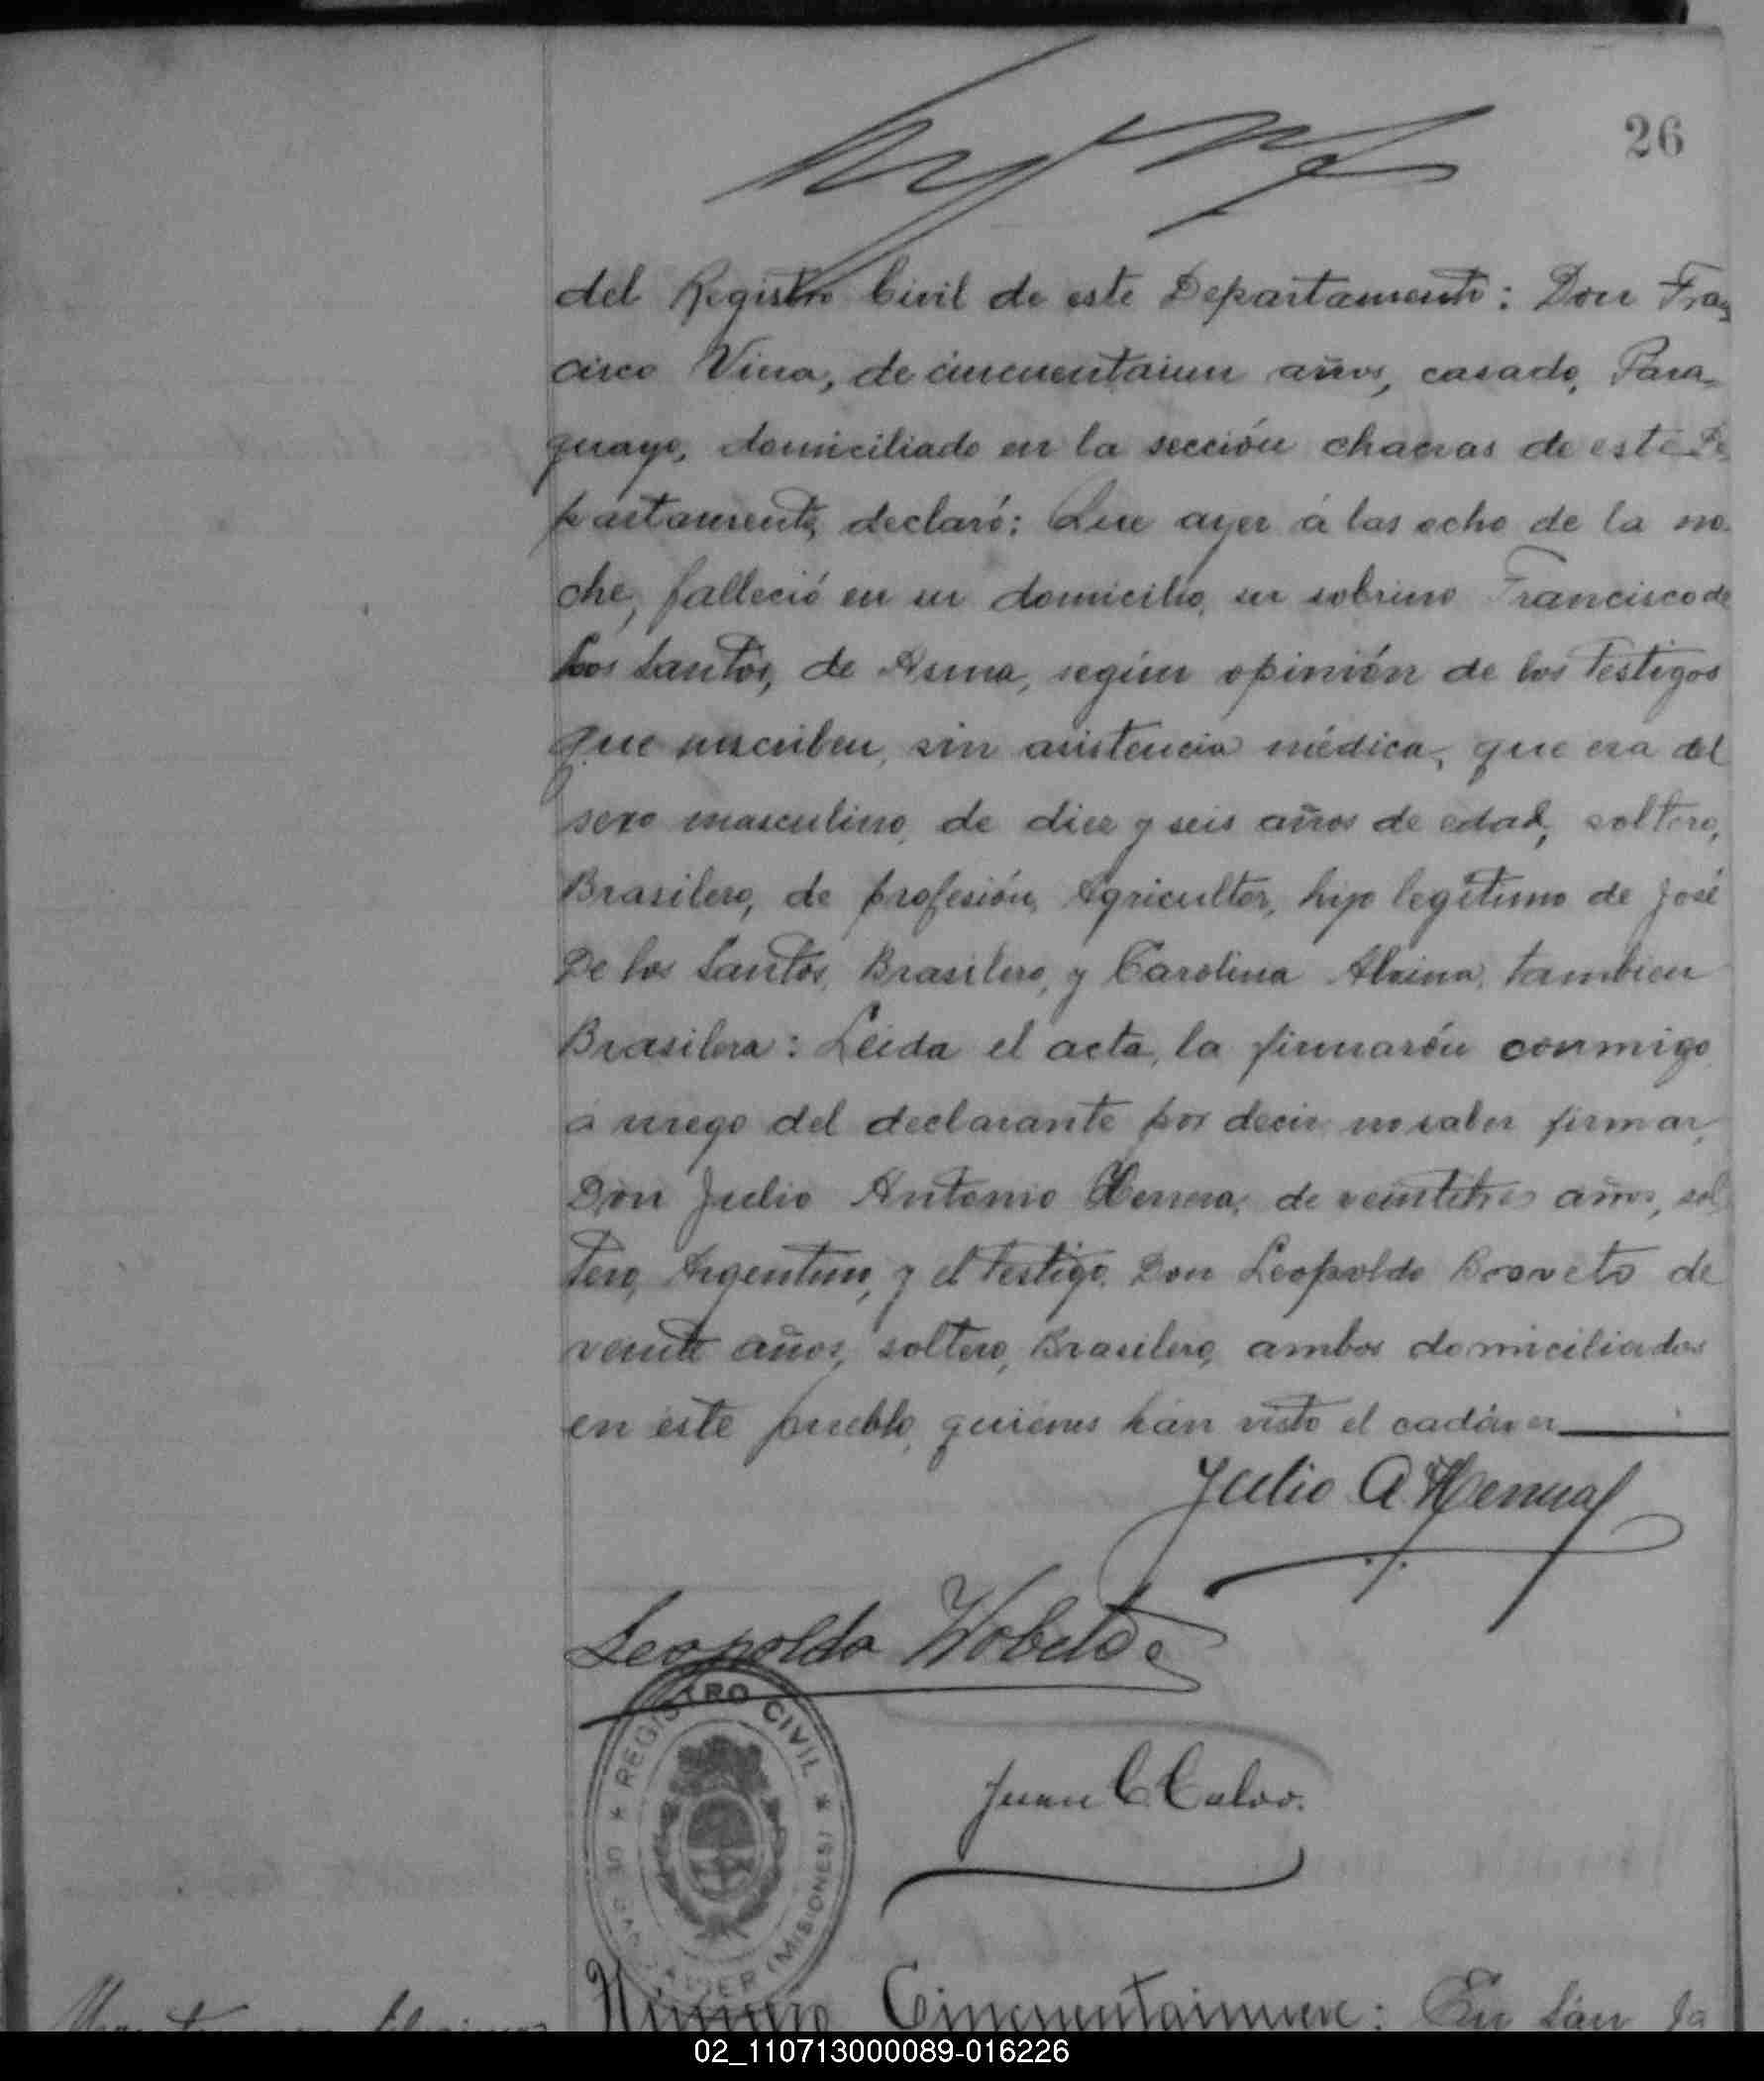 26
del Registro Civil de este Departamento: Don Fran
cisco Vina, de cincuentaiun años, casado, Para-
guayo, domiciliado en la sección chacras de este De
partamento, declaró: Que ayer á las ocho de la no-
che, falleció en su domicilio, su sobrino Francisco de
los Santos, de Asma, según opinión de los testigos
que suscriben, sin asistencia médica, que era del
sexo masculino, de diez y seis años de edad, soltero,
Brasilero, de profesión, Agricultor, hijo legítimo de José
De los Santos, Brasilero, y Carolina Alvina, tambien
Brasilera: Leida el acta, la firmarón conmigo
á ruego del declarante por decir no saber firmar,
Don Julio Antonio Herrera, de veintitres años, sol
tero, Argentino, y el testigo, Don Leopoldo de
veinte años, soltero, Brasilero, ambos domiciliados
en este pueblo, quiénes hán visto el cadáver
Julio A Herrera
Leopoldo
REGISTRO CIVIL
DE (MISIONES)
Juan C. Calvo.
Número Cincuentainueve: En San Ja
02_110713000089-016226